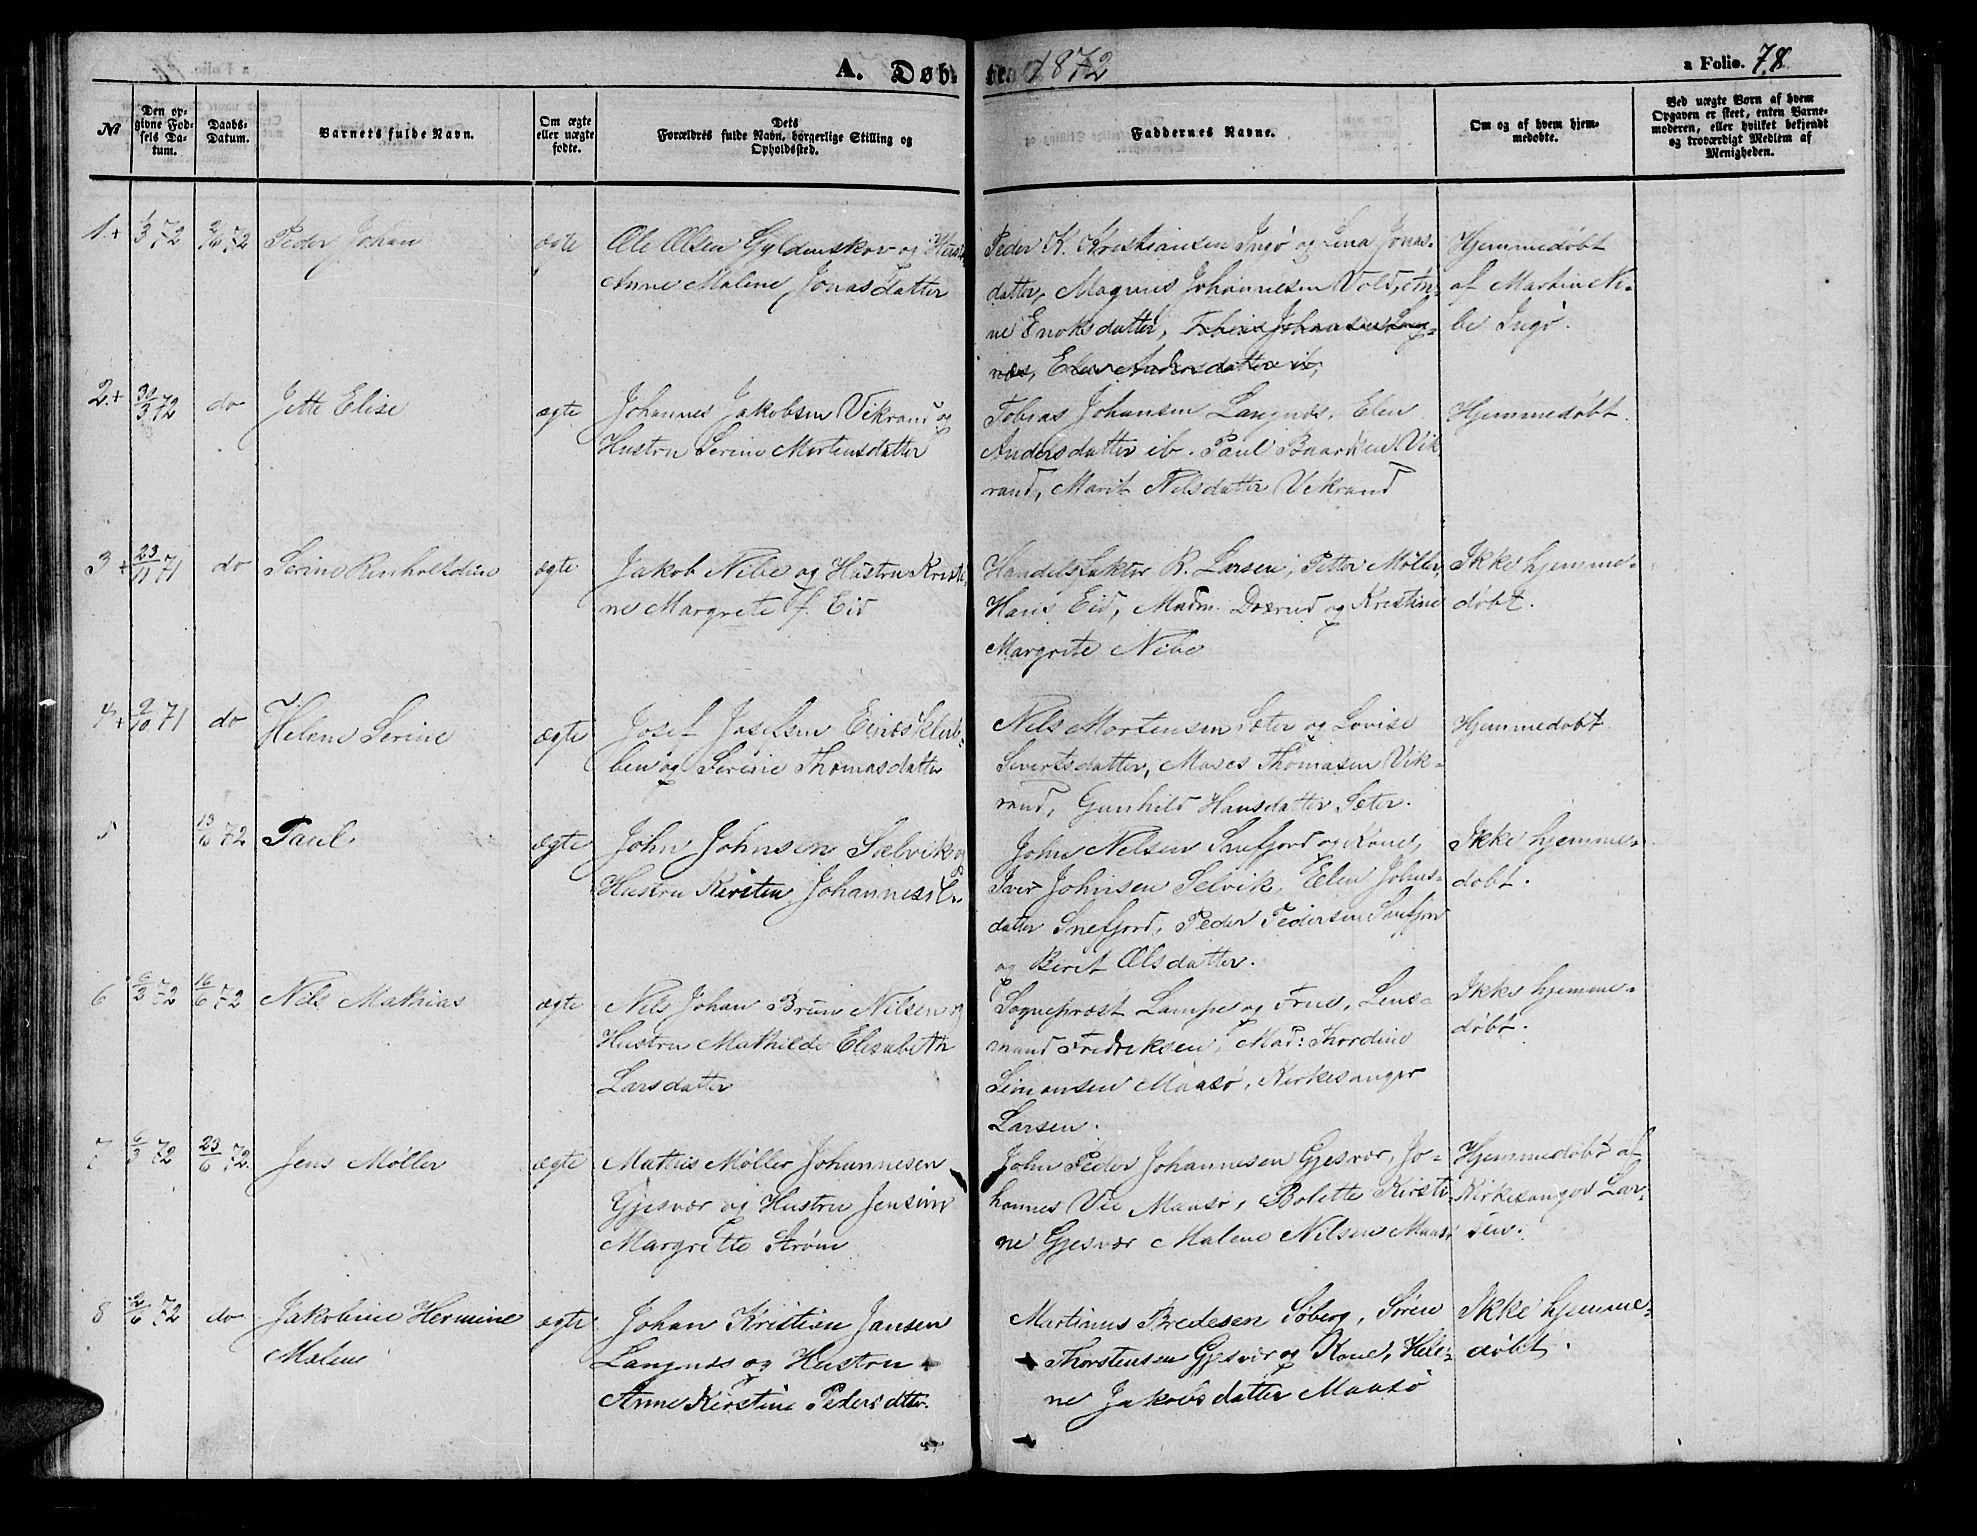 A. Døb- te. 1872
a Folio. 78
№
Den op-
givne Fød-
sels Da-
tum.
Daabs-
Datum.
Barnets fulde Navn.
Om ægte
eller uægte
fødte.
Dets
Forældres fulde Navn, borgerlige Stilling og
Opholdssted.
Faddernes Navne.
Om og af hvem hjem-
medøbte.
Ved uægte Børn af hvem
Opgaven er skeet, enten Barne-
moderen, eller hvilket bekjendt
og troværdigt Medlem af
Menigheden.
1.+ 1/3 72 2/6 72 Peder Johan ægte
Ole Olsen Gyldenskov og Hustr.
Anne Malene Jonasdatter
Peder K. Kristiansen Ingø og Lina Jonas-
datter, Magnus Johannesen Vold, An-
ne Enoksdatter, Tobias Johansen Lang-
næs, Elen Andersdatter ib,
Hjemmedøbt
af Martin Ni-
be Ingø.
2.+ 3/3 72 do Jette Elise ægte
Johannes Jakobsen Vikrand og
Hustru Serine Mortensdatter
Tobias Johansen Langnæs, Elen
Andersdatter ib. Paul Baardsen Vik
rand, Marit Nilsdatter Vikrand
Hjemmedøbt.
3 + 23/11 71 do Serine Reinholdine ægte
Jakob Nibe og Hustru Kristi-
ne Margrete f. Eid
Handelsfaktor R. Larsen, Petter Møller,
Hans Eid, Madm. Daserud og Kristine
Margrete Nibe
Ikke hjemme-
døbt.
4 + 9/10 71 do Helene Serine ægte
Josef Josefsen Einæs Klub-
ben og Serine Thomasdatter
Nils Mortensen Sæter og Lovise
Sivertsdatter, Moses Thomasen Vik-
rand, Gunhild Hansdatter Seter.
Hjemmedøbt
5 13/6 72 Paul ægte
John Johnsen Sælvik og
Hustru Kirsten Johannesd.
John Nilsen Snefjord og Kone,
Iver Johnsen Selvik, Elen Johns-
datter Snefjord, Peder Pedersen Snefjor
og Berit Olsdatter.
Ikke hjemme-
døbt.
6 6/2 72 16/6 72 Nils Mathias ægte
Nils Johan Bruun Nilsen og
Hustru Mathilde Elisabeth
Larsdatter
Sognepræst Lampe og Frue, Lens-
mand Fredriksen, Mad: Thordine
Simonsen Maasø, Kirkesanger
Larsen.
Ikke hjemme-
døbt.
7 6/3 72 23/6 72. Jens Møller ægte
Mathis Møller Johannesen
Gjesvær og Hustru Jensine
Margrette Strøm
John Peder Johannesen Gjesvær, Jo-
hannes Vie Maasø, Bolette Kirsti-
ne Gjesvær Malene Nilsen Maasø
Hjemmedøbt af
Kirkesanger Lar-
sen.
8 2/6 72 do Jakobine Hermine ægte
Malene
Johan Kristian Jansen
Langnæs og Hustru
Anne Kirstine Pedersdtter.
Martinus Bredesen Søberg, Søren
Thorstensen Gjesvær og Kone, Hele-
ne Jakobsdatter Maasø
Ikke hjemme-
døbt.